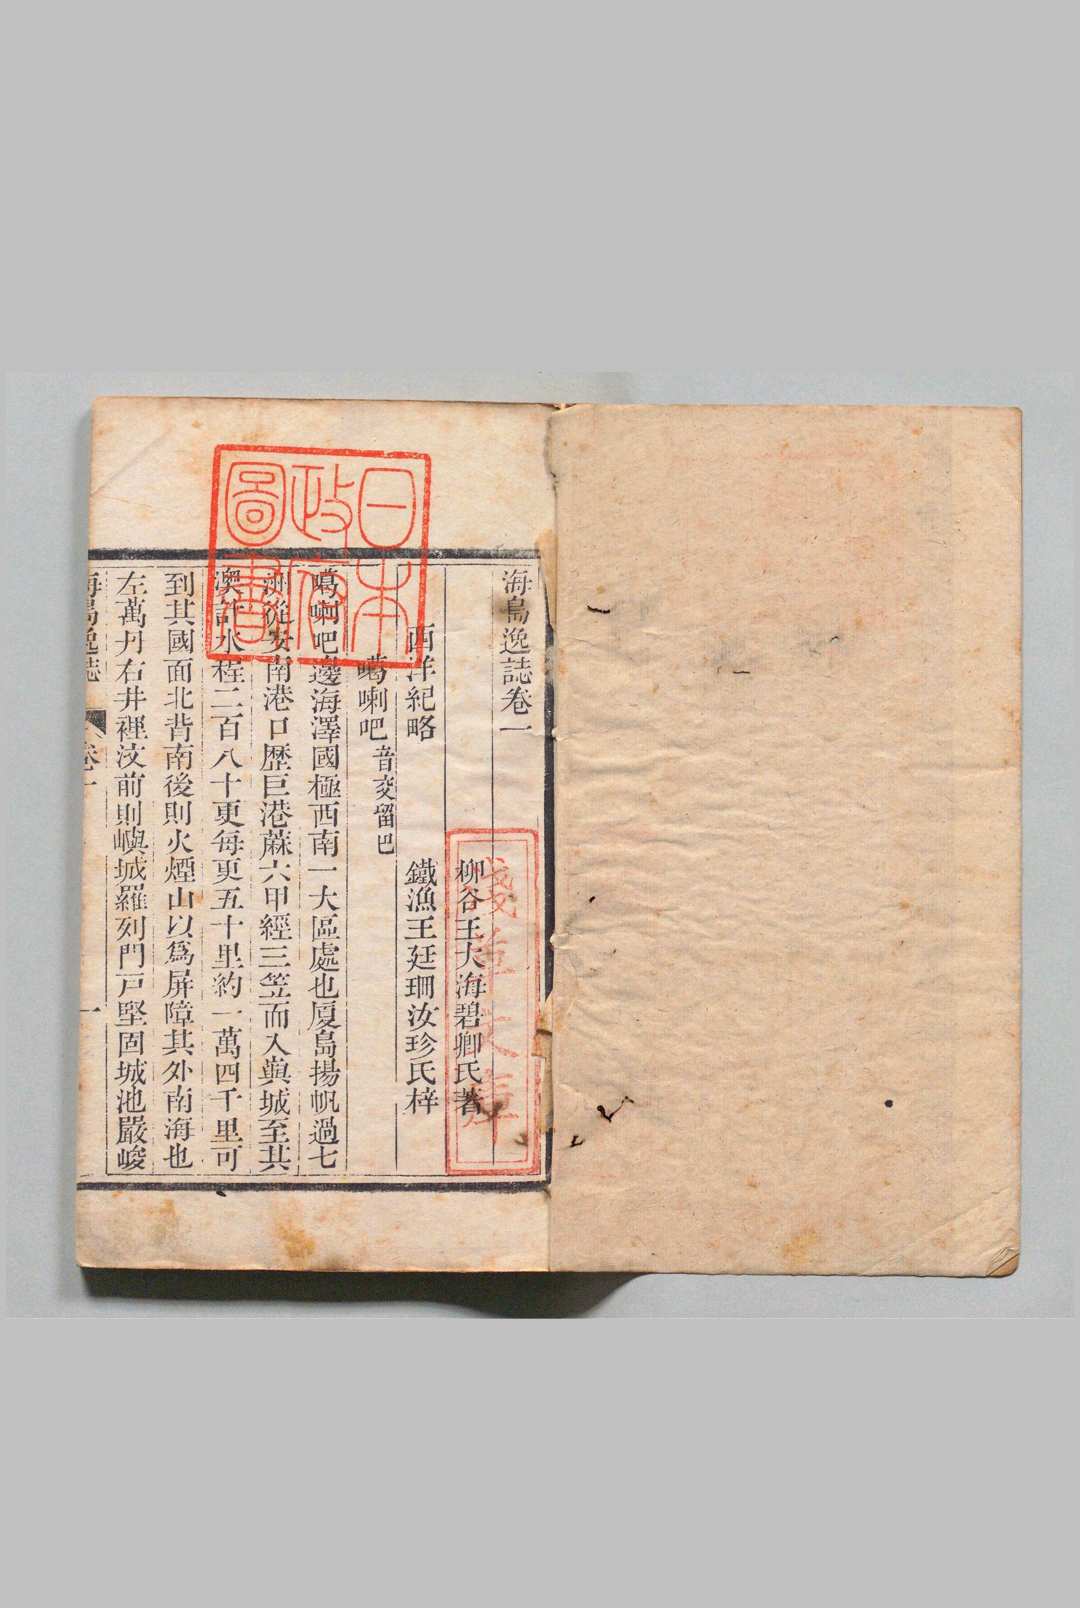 海島逸誌卷一
柳谷王大海碧卿氏著
西洋紀略
鐵漁王廷珊汝珍氏梓
噶喇吧 音交留巴
噶喇吧邊海澤國極西南一大區處也厦島揚帆過七
洲從安南港口歷巨港蔴六甲經三笠而入㠘城至其
澳計水程二百八十更每更五十里約一萬四千里可
到其國面北背南後則火煙山以為屏障其外南海也
左萬丹右井裡汶前則嶼城羅列門戸堅固城池嚴峻
海島逸誌 卷一 一
日本
政府
圖書
淺草文庫